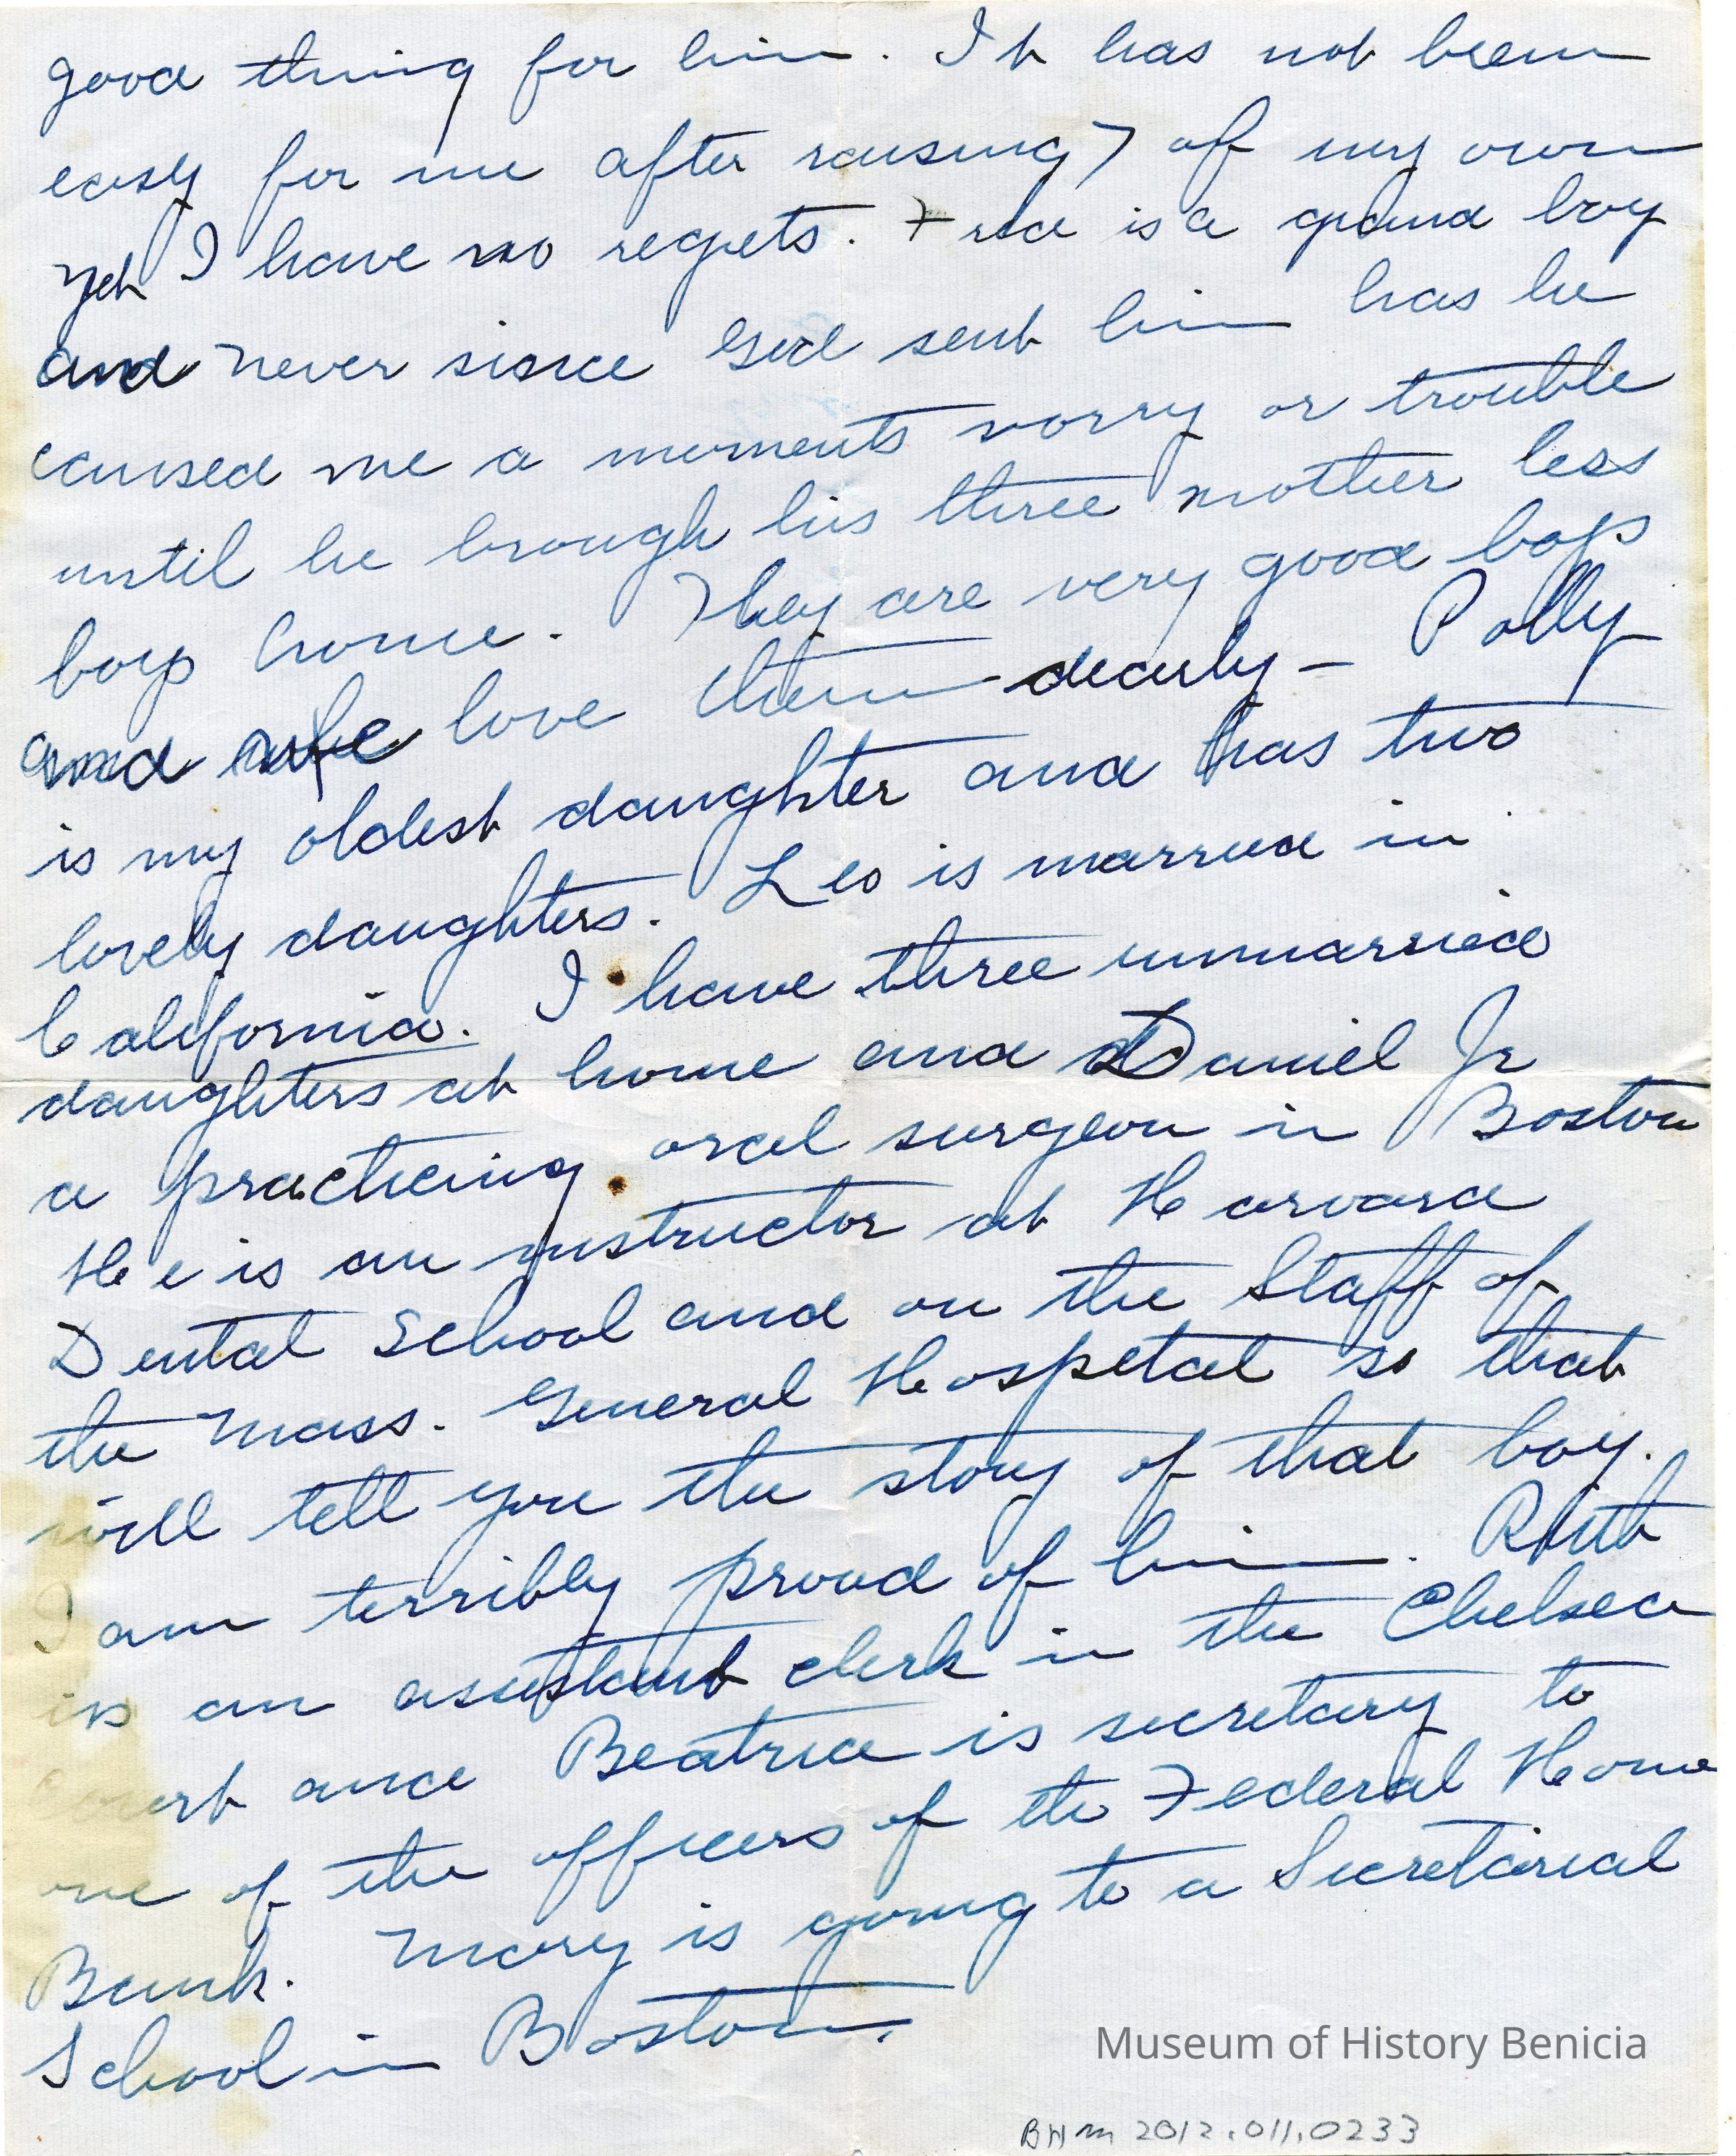 good thing for him. It has not been
easy for me after raising 7 of my own
yet I have no regrets. Fred is a grand boy
and never since God sent him has he
caused me a moments worry or trouble
until he brough his three mother less
boys home. They are very good boys
and we love them dearly - Polly
is my oldest daughter and has two
lovely daughters. Leo is married in
California. I have three unmarried
daughters at home and Daniel Jr
a practicing oral surgeon in Boston
He is an instructor at Harvard
Dental School and on the Staff of
the Mass. General Hospital so that
will tell you the story of that boy.
I am terribly proud of him. Ruth
is an assistant clerk in the Chelsea
Court and Beatrice is secretary to
one of the officers of the Federal Home
Bank. Mary is going to a Secretarial
School in Boston.
Museum of History Benicia
BHM 2012.011.0233